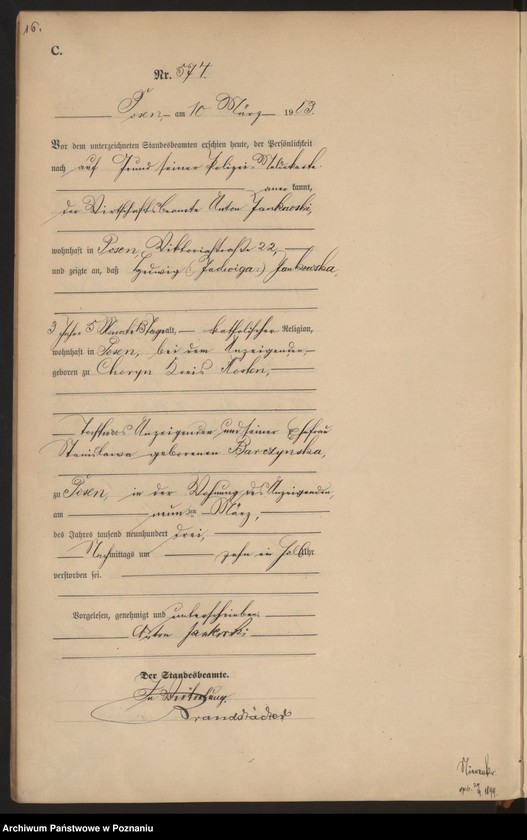 16.
C.
Nr. 574.
Posen, am 10 März 1903.
Vor dem unterzeichneten Standesbeamten erschien heute, der Persönlichkeit
nach auf Grund seiner Polizei-Meldekarte
anerkannt,
der Wirthschaftsbeamte Anton Jankowski,
wohnhaft in Posen, Viktoriastraße 22,
und zeigte an, daß Hedwig (Jadwiga) Jankowska,
3 Jahre 5 Monate Tage alt, katholischer Religion,
wohnhaft in Posen, bei dem Anzeigenden,
geboren zu Choryn Kreis Kosten,
Tochter des Anzeigenden und seiner Ehefrau
Stanislawa geborenen Barczynska,
zu Posen, in der Wohnung des Anzeigenden,
am neunten März,
des Jahres tausend neunhundert drei,
Nachmittags um zehn ein halb Uhr
verstorben sei.
Vorgelesen, genehmigt und unterschrieben
Anton Jankowski
Der Standesbeamte.
In Vertretung.
Brandstädter
1899
Archiwum Państwowe w Poznaniu